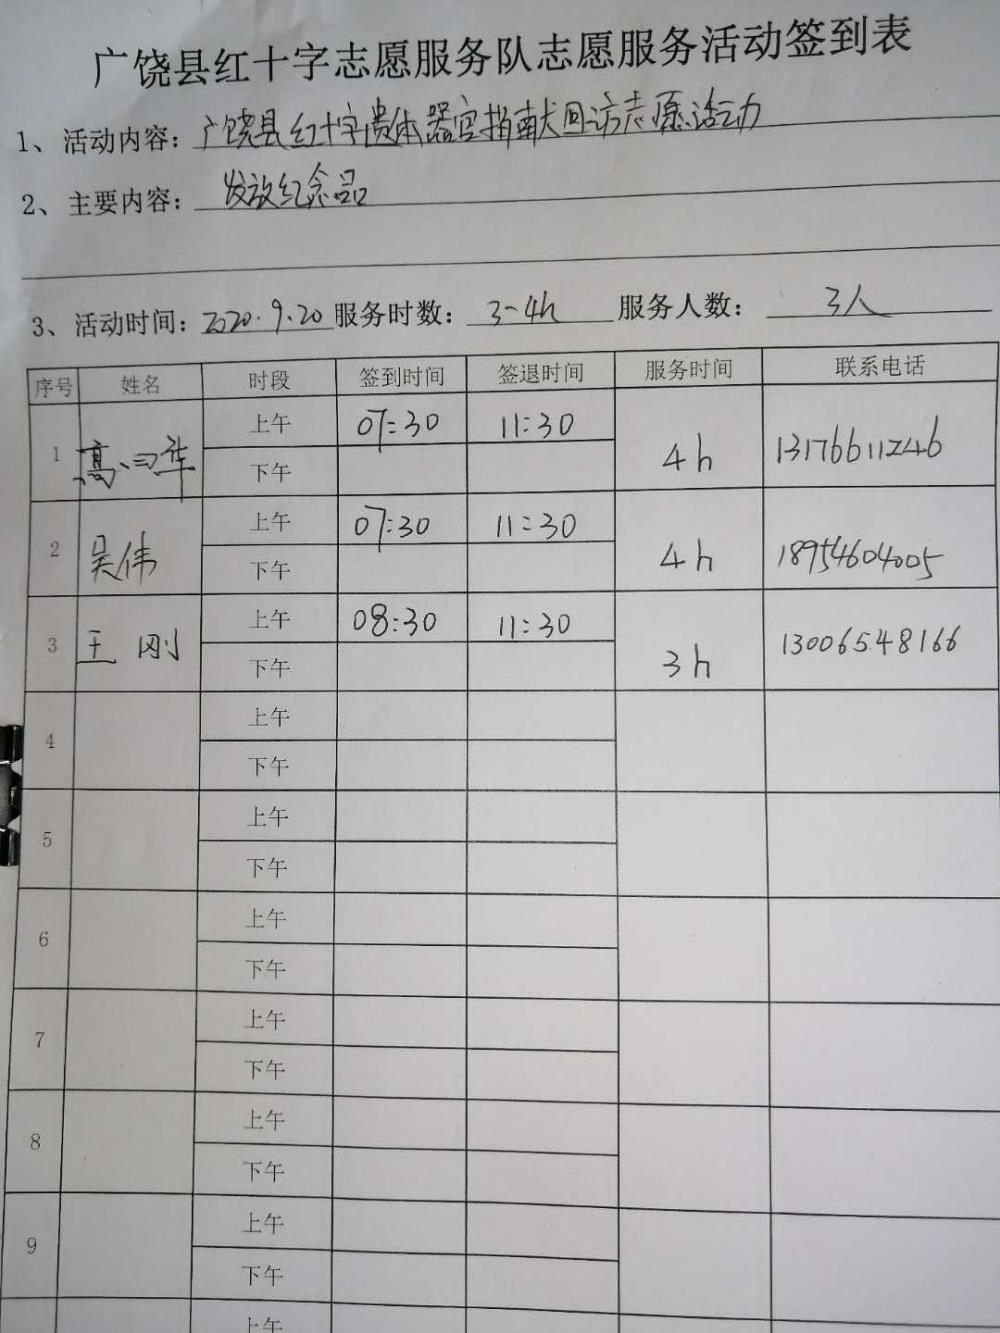 广饶县红十字志愿服务队志愿服务活动签到表
1、活动内容：广饶县红十字遗体器官捐献回访志愿活动
2、主要内容：发放纪念品
3、活动时间：2020.9.20 服务时数：3-4h 服务人数：3人
序号 姓名 时段 签到时间 签退时间 服务时间 联系电话
1 高 华 上午 07:30 11:30 4h 13176611246
下午
2 吴伟 上午 07:30 11:30 4h 18954604005
下午
3 王刚 上午 08:30 11:30 3h 13006548166
下午
4 上午
下午
5 上午
下午
6 上午
下午
7 上午
下午
8 上午
下午
9 上午
下午
上午